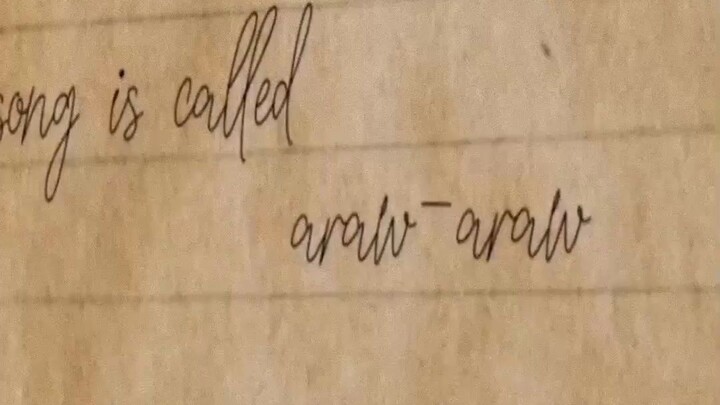 song is called
araw-araw